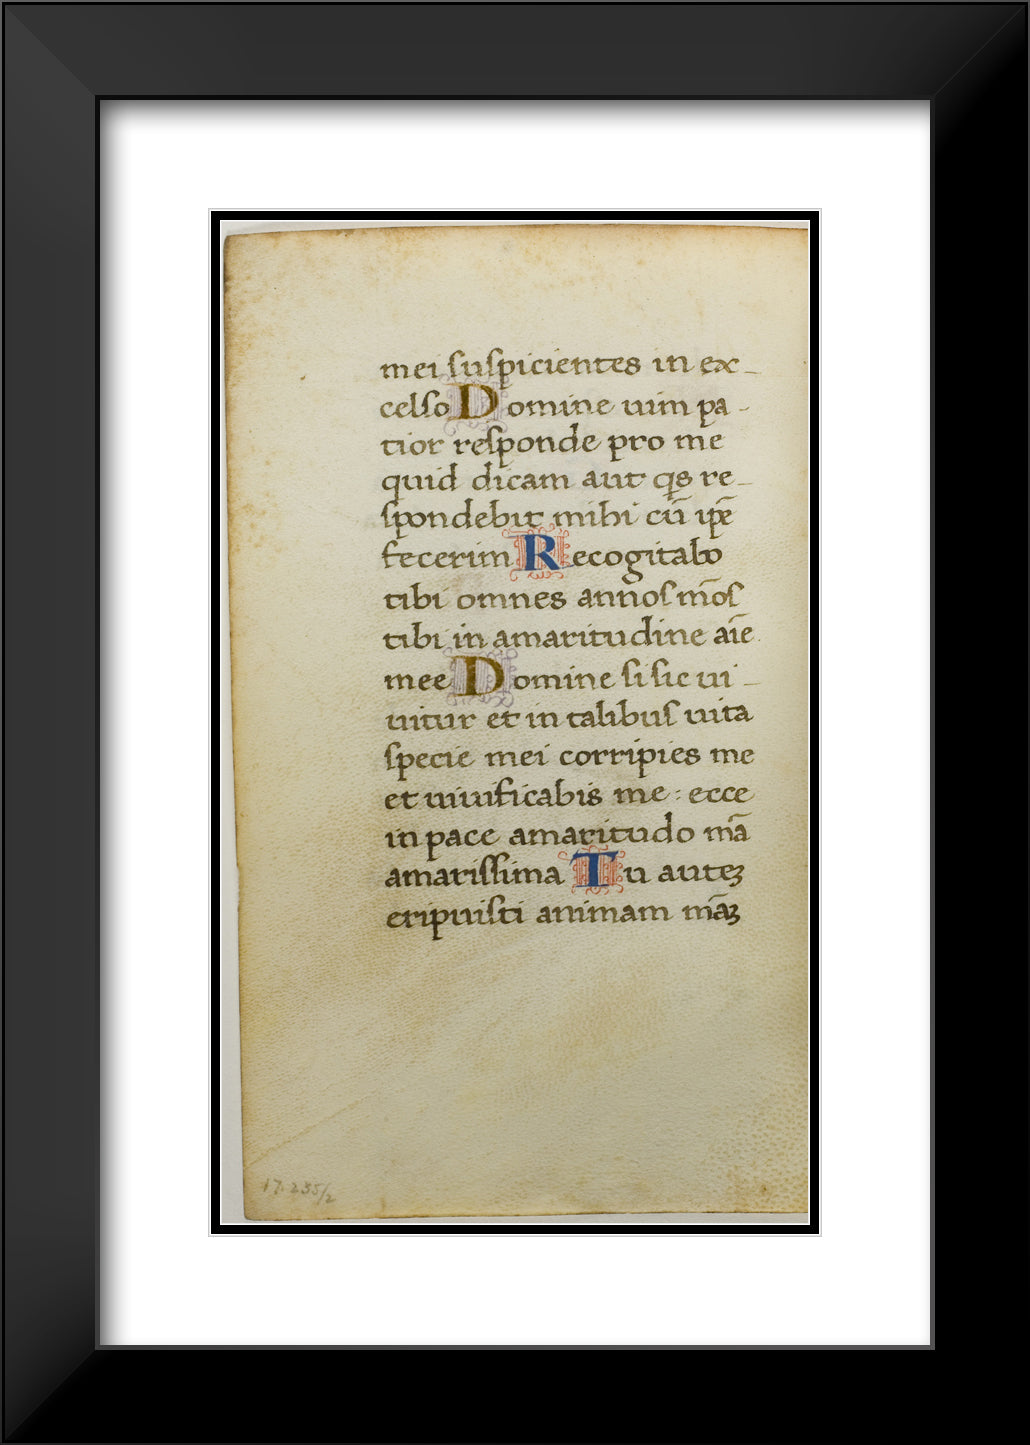 mei suspicientes in ex-
celso Domine uim pa-
tior responde pro me
quid dicam aut qͥs re-
spondebit mihi cū ip̄e
fecerim Recogitabo
tibi omnes annos m̄os
tibi in amaritudine aīe
mee Domine si sic ui-
uitur et in talibus uita
specie mei corripies me
et uiuificabis me : ecce
in pace amaritudo m̄a
amarissima Tu auteꝫ
eripuisti animam m̄aꝫ
17.235/2